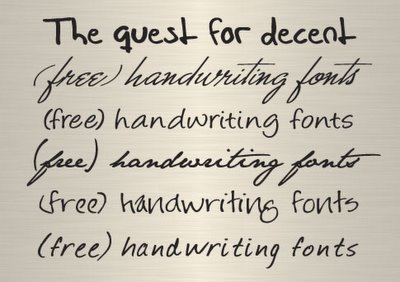 The quest for decent
(free) handwriting fonts
(free) handwriting fonts
(free) handwriting fonts
(free) handwriting fonts
(free) handwriting fonts